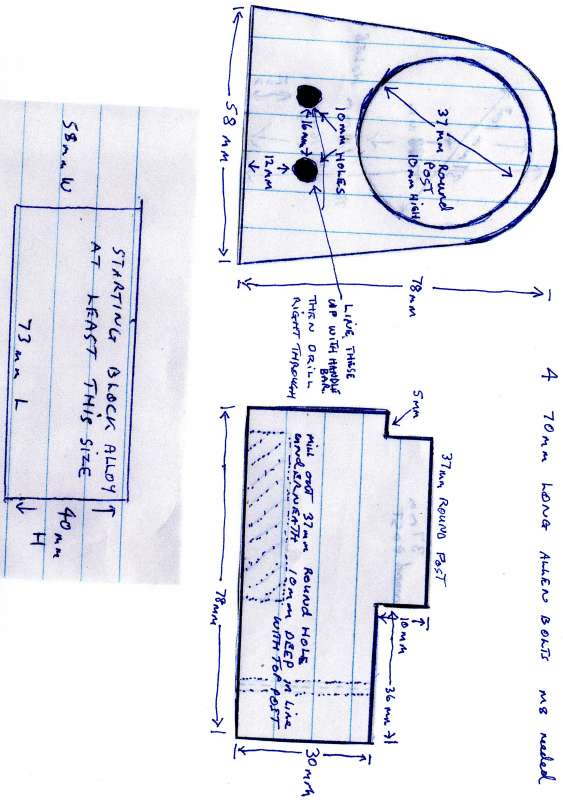 4 70mm LONG ALLEN BOLTS M8 needed
37mm Round
POST
10mm HIGH
78mm
10mm HOLES
16mm
12mm
58mm
LINE THESE
UP WITH HANDLE
BAR
THEN DRILL
RIGHT THROUGH
5mm
37mm ROUND POST
10mm
36mm
30mm
MILL OUT 37mm ROUND HOLE
UNDERNEATH 10mm DEEP IN LINE
WITH TOP POST
78mm
58mm W
STARTING BLOCK ALLOY
AT LEAST THIS SIZE
73mm L
40mm
H